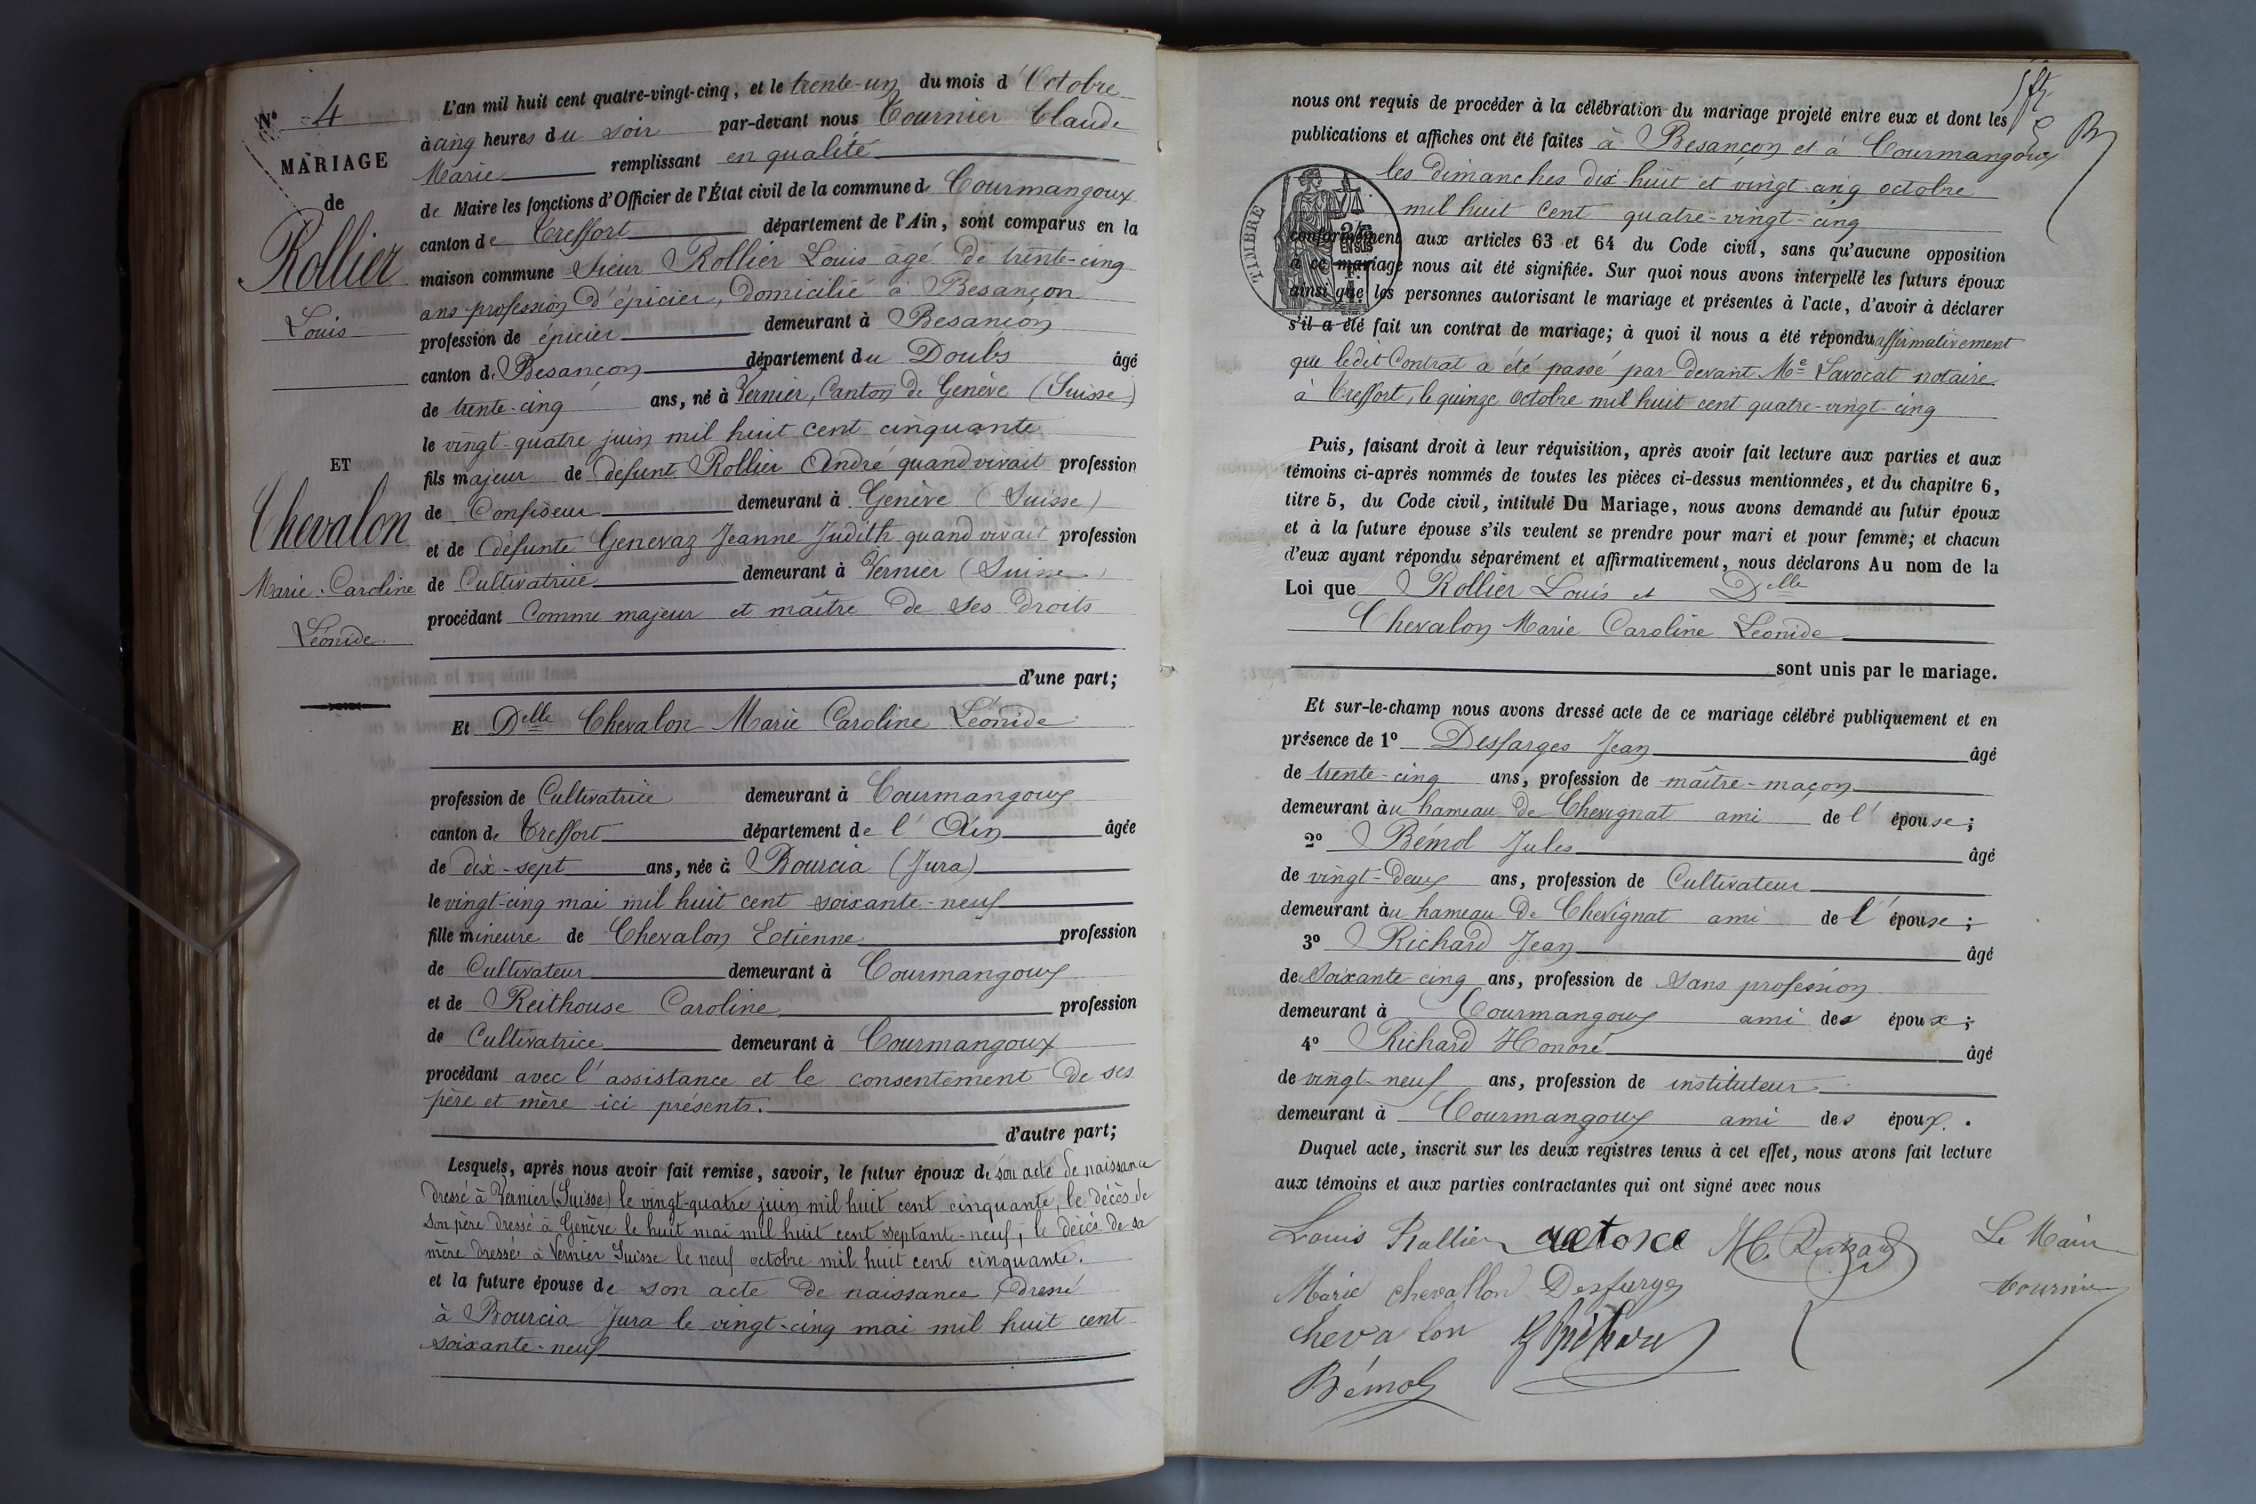 N° 4
MARIAGE
de
Rollier
Louis
ET
Chevalon
Marie-Caroline
Léonide.
L'an mil huit cent quatre-vingt-cinq, et le trente-un du mois d'Octobre
à cinq heures du soir par-devant nous Tournier Claude
Marie remplissant en qualité
de Maire les fonctions d'Officier de l'État civil de la commune de Courmangoux
canton de Treffort département de l'Ain, sont comparus en la
maison commune Sieur Rollier Louis âgé de trente-cinq
ans profession d'épicier, domicilié à Besançon
profession de épicier demeurant à Besançon
canton de Besançon département du Doubs âgé
de trente-cinq ans, né à Vernier, Canton de Genève (Suisse)
le vingt-quatre juin mil huit cent cinquante
fils majeur de défunt Rollier André quand vivait profession
de Confiseur demeurant à Genève (Suisse)
et de défunte Genevaz Jeanne Judith quand vivait profession
de Cultivatrice demeurant à Vernier (Suisse)
procédant comme majeur et maître de ses droits
d'une part;
Et Delle Chevalon Marie Caroline Léonide
profession de Cultivatrice demeurant à Courmangoux
canton de Treffort département de l'Ain âgée
de dix-sept ans, née à Bourcia (Jura)
le vingt-cinq mai mil huit cent soixante-neuf
fille mineure de Chevalon Etienne profession
de Cultivateur demeurant à Courmangoux
et de Reithouse Caroline profession
de Cultivatrice demeurant à Courmangoux
procédant avec l'assistance et le consentement de ses
père et mère ici présents.
d'autre part;
Lesquels, après nous avoir fait remise, savoir, le futur époux de son acte de naissance
dressé à Vernier (Suisse) le vingt-quatre juin mil huit cent cinquante, le décès de
son père dressé à Genève le huit mai mil huit cent septante-neuf, le décès de sa
mère dressé à Vernier Suisse le neuf octobre mil huit cent cinquante.
et la future épouse de son acte de naissance dressé
à Bourcia Jura le vingt-cinq mai mil huit cent
soixante-neuf
nous ont requis de procéder à la célébration du mariage projeté entre eux et dont les
publications et affiches ont été faites à Besançon et à Courmangoux
les dimanches dix huit et vingt cinq octobre
mil huit cent quatre-vingt-cinq
TIMBRE
EN SUS
conformément aux articles 63 et 64 du Code civil, sans qu'aucune opposition
à ce mariage nous ait été signifiée. Sur quoi nous avons interpellé les futurs époux
ainsi que les personnes autorisant le mariage et présentes à l'acte, d'avoir à déclarer
s'il a été fait un contrat de mariage; à quoi il nous a été répondu affirmativement
que ledit Contrat a été passé par devant Me Lavocat notaire
à Treffort, le quinze octobre mil huit cent quatre-vingt-cinq
Puis, faisant droit à leur réquisition, après avoir fait lecture aux parties et aux
témoins ci-après nommés de toutes les pièces ci-dessus mentionnées, et du chapitre 6,
titre 5, du Code civil, intitulé Du Mariage, nous avons demandé au futur époux
et à la future épouse s'ils veulent se prendre pour mari et pour femme; et chacun
d'eux ayant répondu séparément et affirmativement, nous déclarons Au nom de la
Loi que Rollier Louis et Delle
Chevalon Marie Caroline Leonide
sont unis par le mariage.
Et sur-le-champ nous avons dressé acte de ce mariage célébré publiquement et en
présence de 1° Desfarges Jean âgé
de trente-cinq ans, profession de maître-maçon
demeurant au hameau de Chevignat ami de l'épouse;
2° Bémol Jules âgé
de vingt-deux ans, profession de Cultivateur
demeurant au hameau de Chevignat ami de l'épouse;
3° Richard Jean âgé
de soixante cinq ans, profession de sans profession
demeurant à Courmangoux ami des époux;
4° Richard Honoré âgé
de vingt-neuf ans, profession de instituteur
demeurant à Courmangoux ami des époux.
Duquel acte, inscrit sur les deux registres tenus à cet effet, nous avons fait lecture
aux témoins et aux parties contractantes qui ont signé avec nous
Louis Rollier
Le Maire
Marie chevallon Desfarges Tournier
chevalon
Bémol